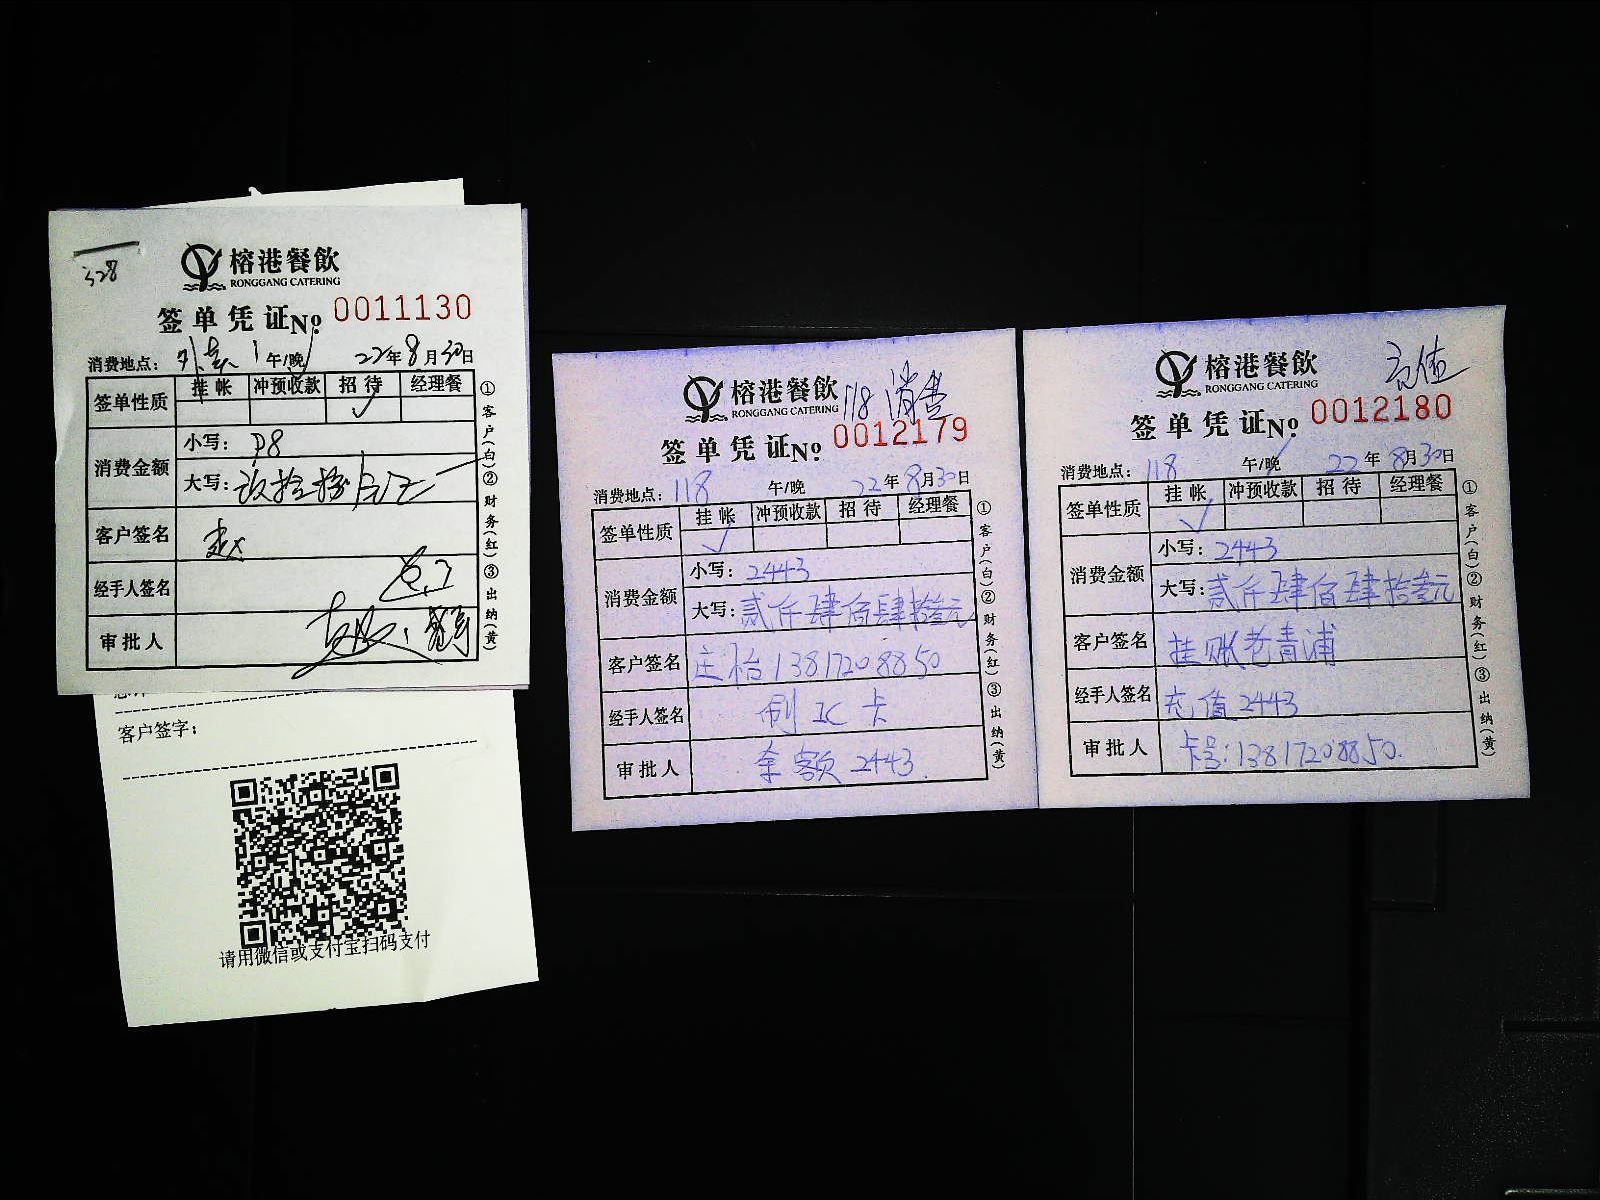 328
榕港餐飲
RONGGANG CATERING
签单凭证№ 0011130
消费地点: 外卖 午/晚 22年8月30日
签单性质 挂帐 冲预收款 招待 经理餐
✓
消费金额 小写:
大写:
客户签名 赵
经手人签名
审批人
①客户(白)②财务(红)③出纳(黄)
客户签字:
请用微信或支付宝扫码支付
榕港餐飲 118 消费
RONGGANG CATERING
签单凭证№ 0012179
消费地点: 118 午/晚 22年8月30日
签单性质 挂帐 冲预收款 招待 经理餐
✓
消费金额 小写: 2443
大写: 贰仟肆佰肆拾叁元
客户签名 庄怡 13817208850
经手人签名 制IC卡
审批人 余额2443.
①客户(白)②财务(红)③出纳(黄)
榕港餐飲 充值
RONGGANG CATERING
签单凭证№ 0012180
消费地点: 118 午/晚 22年8月30日
签单性质 挂帐 冲预收款 招待 经理餐
✓
消费金额 小写: 2443
大写: 贰仟肆佰肆拾叁元
客户签名 挂账老青浦
经手人签名 充值2443
审批人 卡号:13817208850.
①客户(白)②财务(红)③出纳(黄)